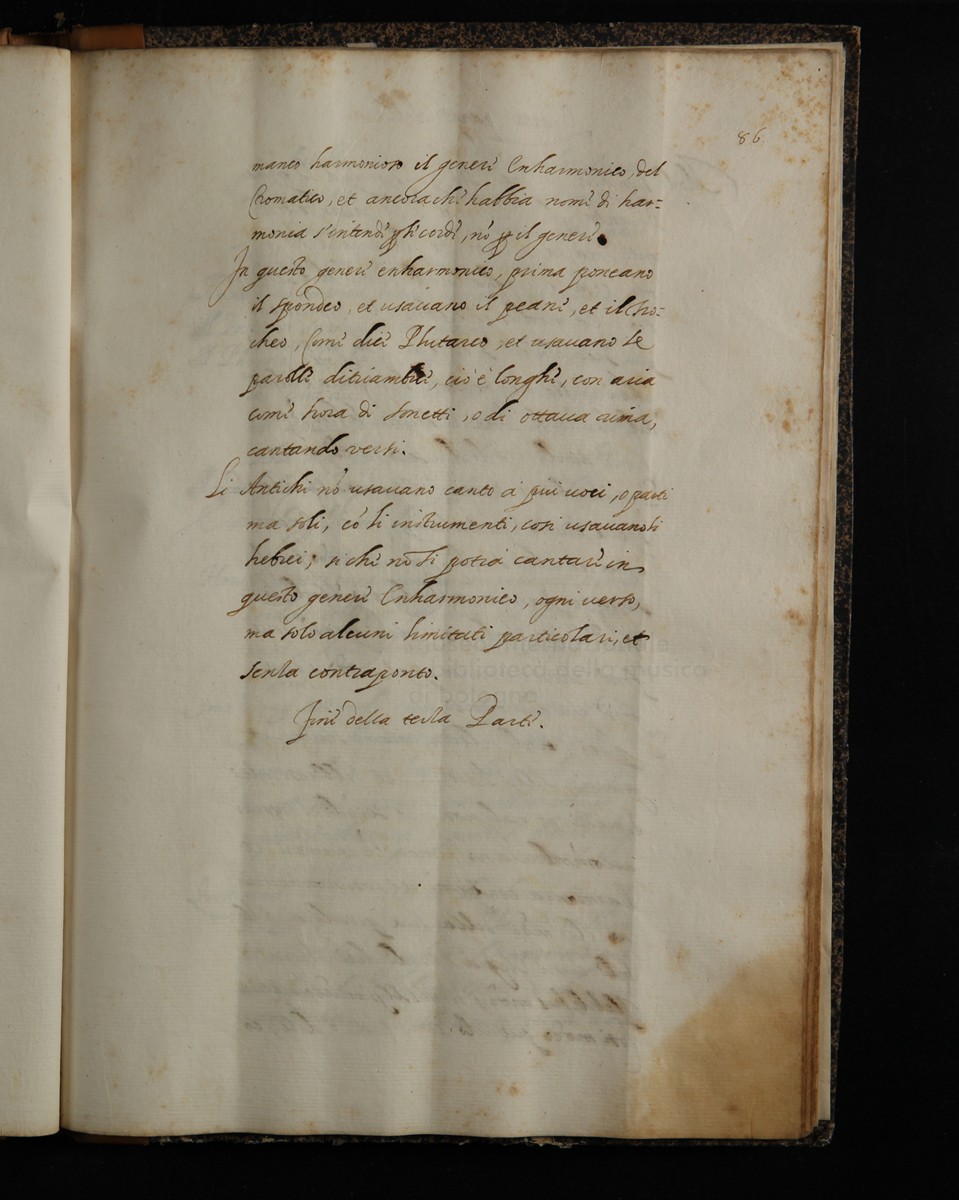 86
manco harmonioso il genere Enharmonico, del
Cromatico, et ancora che habbia nome di har=
monia s'intende p le corde, nō p il genere.
In questo genere enharmonico, prima poneano
il spondeo, et usavano il peane, et il cho=
cheo, Come dice Plutarco, et usavano le
parolle ditirambice, cio è longhe, con aria
come hora di sonetti, o di ottava rima,
cantando versi.
Li Antichi nō usavano canto à piu voci, o parti
ma soli, cō li instrumenti, cosi usavano li
hebrei; si che nō si potrà cantare in
questo genere Enharmonico, ogni verso,
ma solo alcuni limitati particolari, et
senza contraponto.
Fine della terza Parte.
biblioteca della musica
di bologna